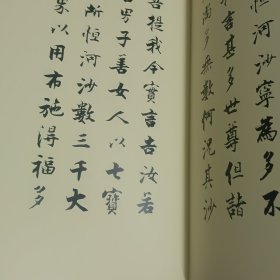 恒河沙寧為多不
言甚多世尊但諸
尚多無數何況其沙
菩提我今實言告汝若
善男子善女人以七寶
所恒河沙數三千大
界以用布施得福多